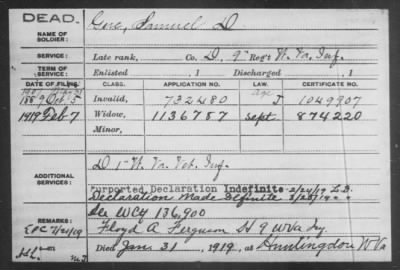 DEAD.
NAME OF SOLDIER:
Samuel D.
SERVICE:
Late rank, Co. D, 9" Reg't W. Va. Inf.
TERM OF SERVICE
Enlisted , 1 Discharged , 1
DATE OF FILING.
CLASS. APPLICATION NO. LAW. CERTIFICATE NO.
Oct 5 Invalid, 732480 1049907
1919 Feb 7 Widow, 1136757 Sept. 874220
Minor,
ADDITIONAL SERVICES:
D 1" W. Va. Vet. Inf.
Purported Declaration Indefinite 2/24/19
Declaration Made Definite
WCY 136,900
REMARKS:
Floyd A Ferguson H 9 WVa
Died Jan. 31, 1919, at Huntingdon W Va